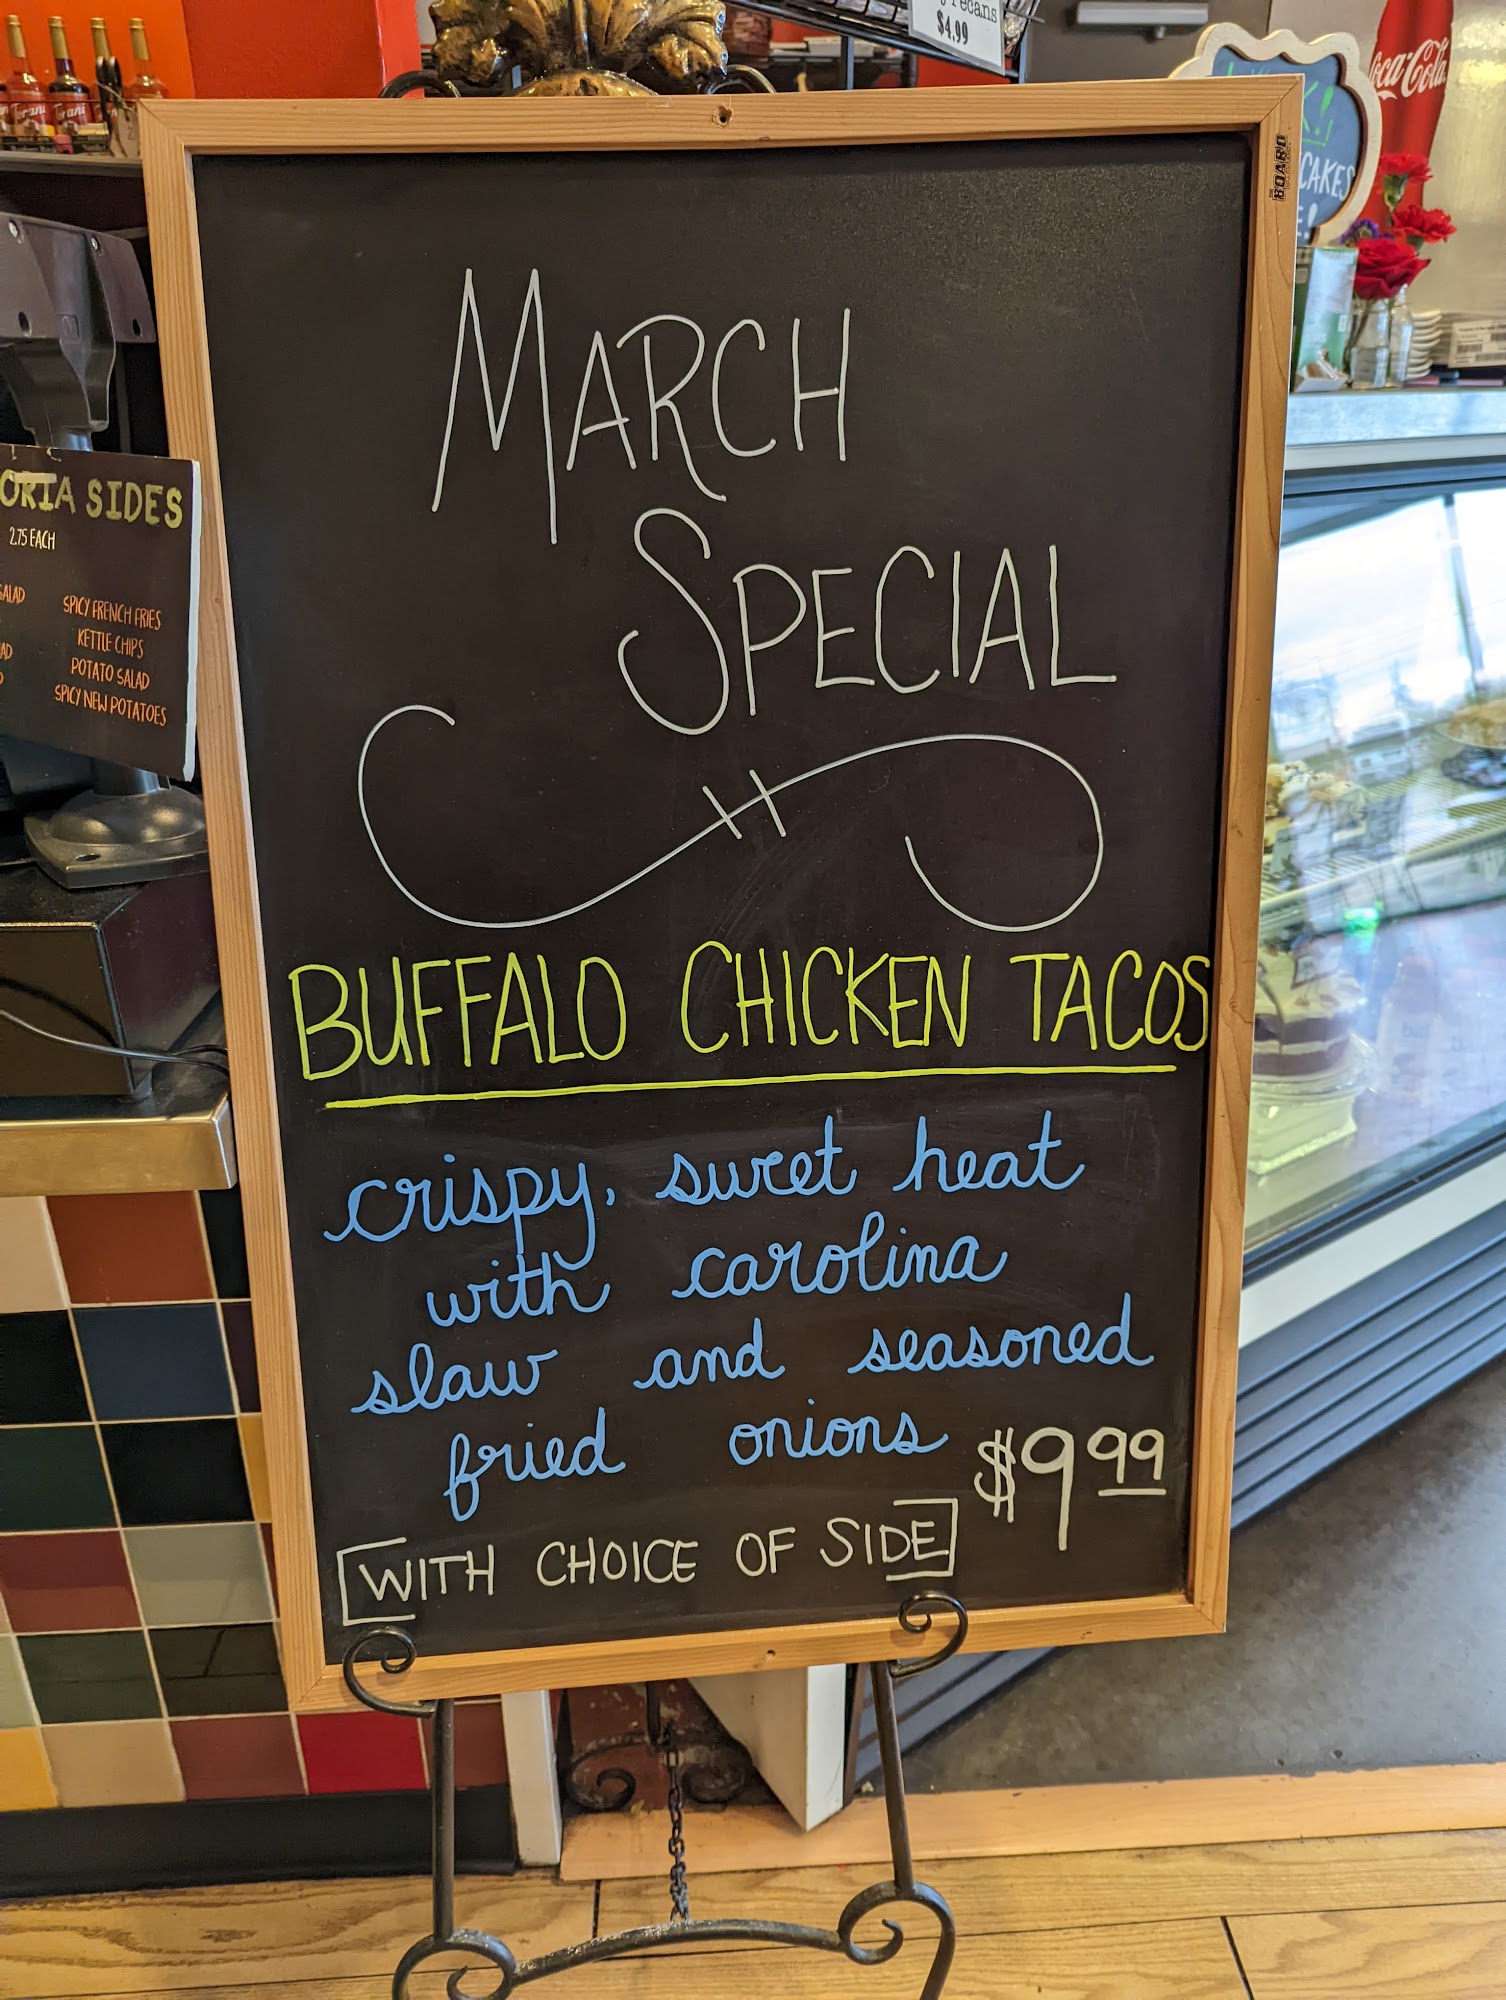 Pecans
$4.99
Coca-Cola
Torani
THE BOARD
CAKES
SIDES
2.75 EACH
SALAD
SPICY FRENCH FRIES
KETTLE CHIPS
POTATO SALAD
SPICY NEW POTATOES
MARCH
SPECIAL
BUFFALO CHICKEN TACOS
crispy, sweet heat
with carolina
slaw and seasoned
fried onions $9.99
WITH CHOICE OF SIDE